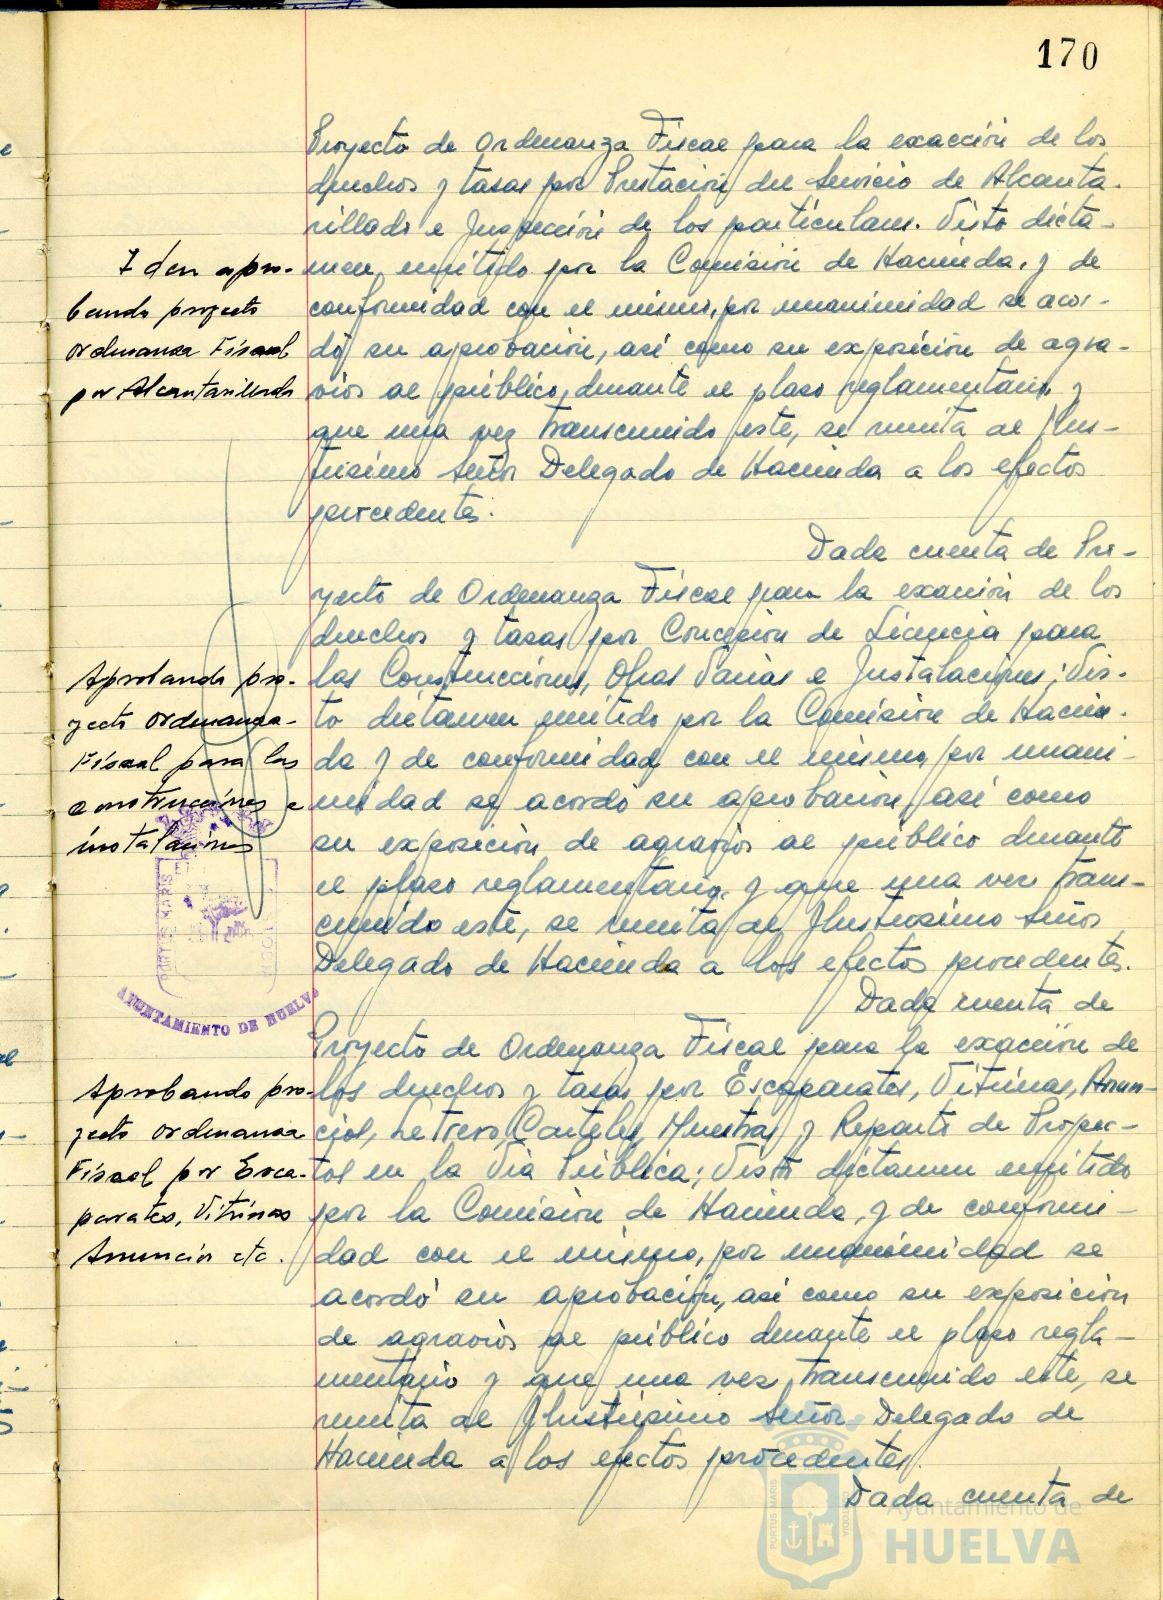 170
Proyecto de Ordenanza Fiscal para la exacción de los
derechos y tasas por Prestación del Servicio de Alcanta-
rillado e Inspección de los particulares. Visto dicta-
Idem apro-
men emitido por la Comisión de Hacienda, y de
bando proyecto
conformidad con el mismo, por unanimidad se acor-
ordenanza Fiscal
dó su aprobación, así como su exposición de agra-
por Alcantarillado
vios al público, durante el plazo reglamentario y
que una vez transcurrido este, se remita al Ilus-
trísimo Señor Delegado de Hacienda a los efectos
procedentes.
Dada cuenta de Pro-
yecto de Ordenanza Fiscal para la exacción de los
derechos y tasas por Concesión de Licencia para
Aprobando pro-
las Construcciones, Obras Varias e Instalaciones; Vis-
yecto ordenanza-
to dictamen emitido por la Comisión de Hacien-
Fiscal para las
da y de conformidad con el mismo, por unani-
construcciones e
midad se acordó su aprobación, así como
instalaciones
su exposición de agravios al público durante
el plazo reglamentario, y que una vez trans-
currido este, se remita al Ilustrísimo Señor
Delegado de Hacienda a los efectos procedentes.
PORTUS MARIS
CUSTODIA
AYUNTAMIENTO DE HUELVA
Dada cuenta de
Proyecto de Ordenanza Fiscal para la exacción de
Aprobando pro-
los derechos y tasas por Escaparates, Vitrinas, Anun-
yecto ordenanza
cios, Letreros, Carteles, Muestras y Reparto de Prospec-
Fiscal por Esca-
tos en la Vía Pública; Visto dictamen emitido
parates, Vitrinas
por la Comisión de Hacienda, y de conformi-
Anuncios etc.
dad con el mismo, por unanimidad se
acordó su aprobación, así como su exposición
de agravios al público durante el plazo regla-
mentario y que una vez transcurrido este, se
remita al Ilustrísimo Señor Delegado de
Hacienda a los efectos procedentes.
Dada cuenta de
PORTUS MARIS
CUSTODIA
Ayuntamiento de
HUELVA